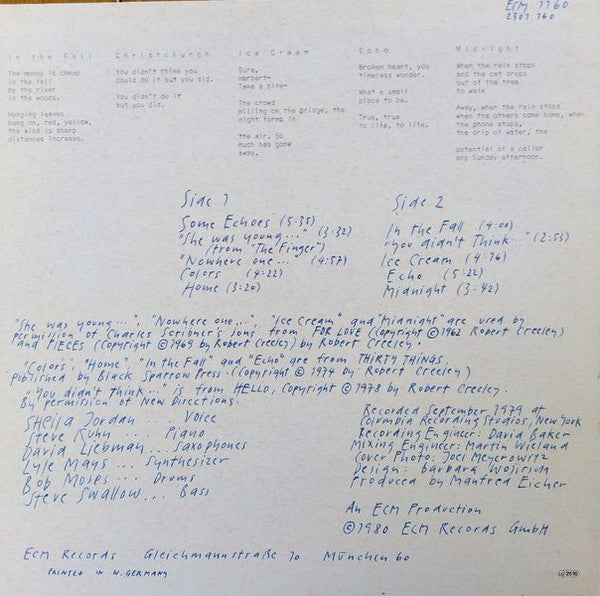 ECM 1160
2301 160
In the Fall
The money is cheap
in the fall
by the river
in the woods.
Hanging leaves
hang on, red, yellow,
the wind is sharp
distances increase.
Christchurch
You didn't think you
could do it but you did.
You didn't do it
but you did.
Ice Cream
Sure,
Herbert-
Take a bite-
The crowd
milling on the bridge, the
night forms in
the air. So
much has gone
away.
Echo
Broken heart, you
timeless wonder.
What a small
place to be.
True, true
to life, to life.
Midnight
When the rain stops
and the cat drops
out of the tree
to walk
Away, when the rain stops
when the others come home, when
the phone stops,
the drip of water, the
potential of a caller
any Sunday afternoon.
Side 1
Some Echoes (5:35)
"She was young..." (3:32)
(from "The Finger")
"Nowhere one..." (4:57)
Colors (4:22)
Home (3:20)
Side 2
In the Fall (4:00)
"You didn't think..." (2:53)
Ice Cream (4:16)
Echo (5:22)
Midnight (3:42)
"She was young...", "Nowhere one...", "Ice Cream" and "Midnight" are used by
permission of Charles Scribner's Sons from FOR LOVE (Copyright ©1962 Robert Creeley)
and PIECES (Copyright ©1969 by Robert Creeley) by Robert Creeley.
"Colors", "Home", "In the Fall" and "Echo" are from THIRTY THINGS,
published by Black Sparrow Press. (Copyright © 1974 by Robert Creeley)
"You didn't think..." is from HELLO, Copyright ©1978 by Robert Creeley.
By permission of New Directions.
Sheila Jordan ... Voice
Steve Kuhn ... Piano
David Liebman ... Saxophones
Lyle Mays ... Synthesizer
Bob Moses ... Drums
Steve Swallow ... Bass
Recorded September 1979 at
Columbia Recording Studios, New York
Recording Engineer: David Baker
Mixing Engineer: Martin Wieland
Cover Photo: Joel Meyerowitz
Design: Barbara Wojirsch
Produced by Manfred Eicher
An ECM Production
©1980 ECM Records GmbH
ECM Records Gleichmannstraße 10 München 60
PRINTED IN W. GERMANY